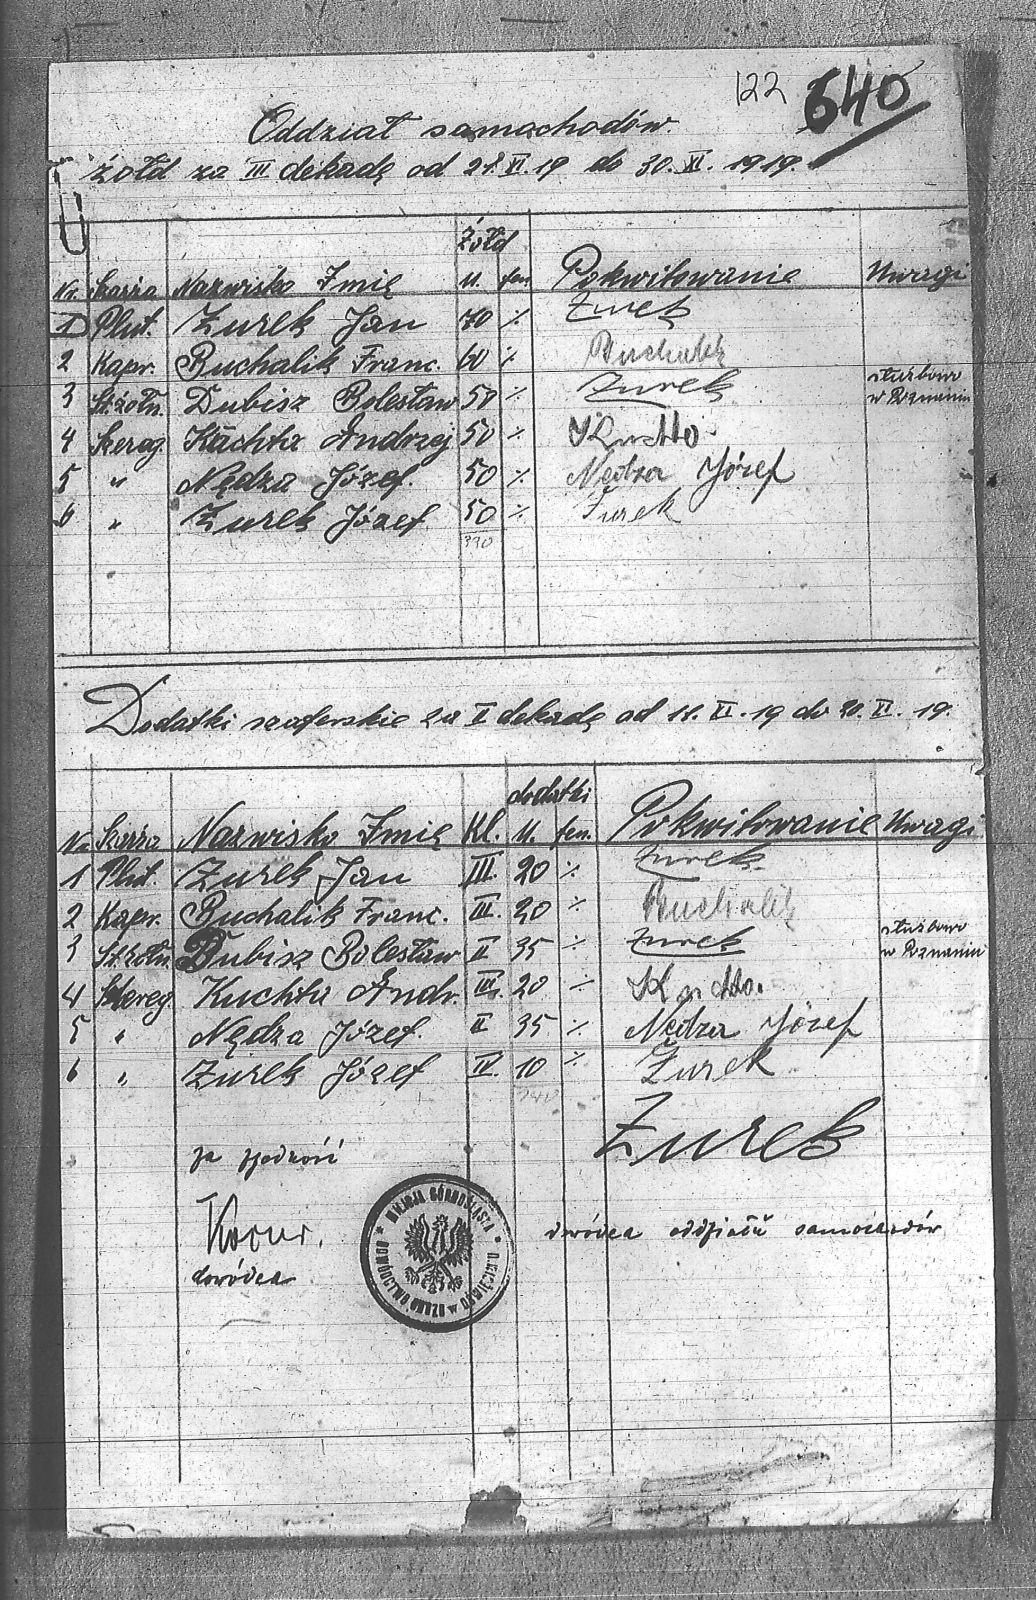 122 640
Oddział samochodów.
żołd za III dekadę od 21.XI.19 do 30.XI.1919.
Żołd
Nr. Szarża Nazwisko Imię M. fen. Pokwitowanie Uwagi
1 Plut. Żurek Jan 70 % Żurek
2 Kapr. Buchalik Franc. 60 % Buchalik
3 St.żołn. Dubisz Bolesław 50 % Żurek służbowo w Poznaniu
4 Szereg. Kuchta Andrzej 50 % Kuchta
5 " Nędza Józef. 50 % Nędza Józef
6 " Żurek Józef 50 % Żurek
330
Dodatki szoferskie za II dekadę od 11.XI.19 do 20.XI.19.
dodatki
Nr. Szarża Nazwisko Imię Kl. M. fen. Pokwitowanie Uwagi
1 Plut. Żurek Jan III. 20 % Żurek
2 Kapr. Buchalik Franc. III. 20 % Buchalik
3 St.żołn. Dubisz Bolesław II 35 % Żurek służbowo w Poznaniu
4 Szereg. Kuchta Andr. III. 20 % Kuchta.
5 " Nędza Józef. II 35 % Nędza Józef
6 " Żurek Józef IV. 10 % Żurek
140
Żurek
za zgodność
dowódca oddziału samochodów
dowódca
MILICJA GÓRNOŚLĄSKA * DOWÓDZTWO OBOZU w